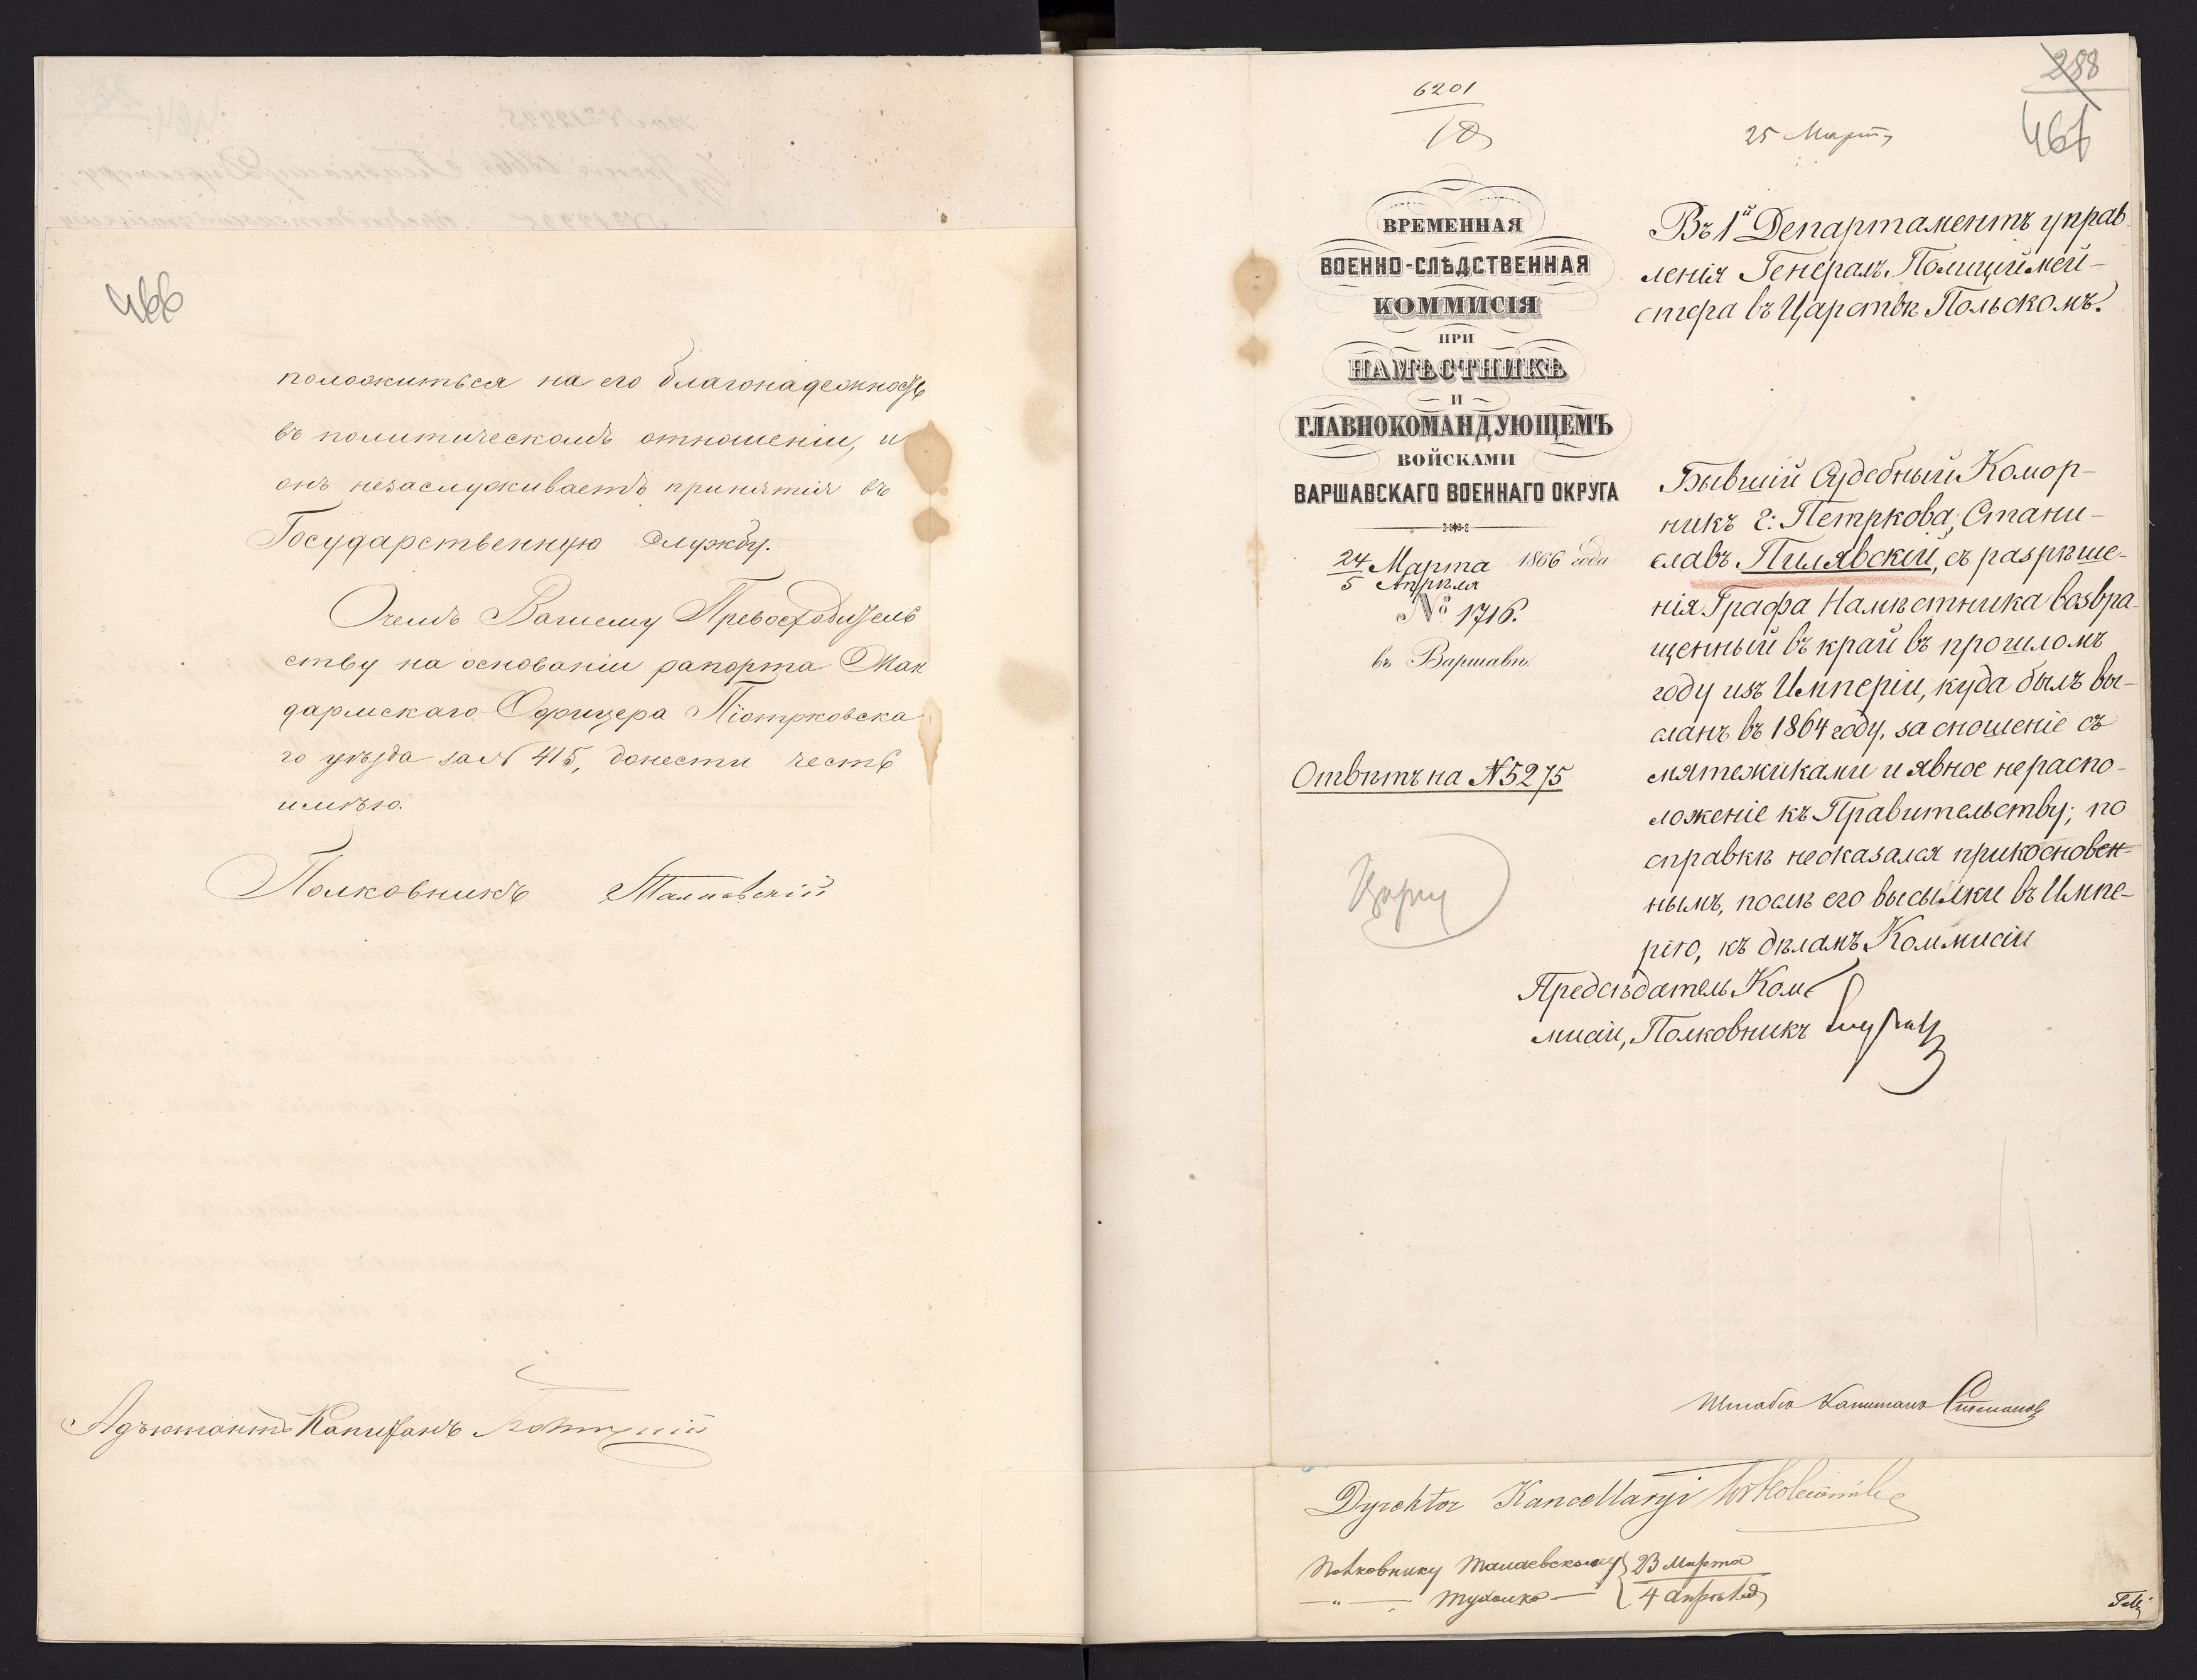 466
положиться на его благонадежность
въ политическомъ отношеніи, и
онъ незаслуживаетъ принятія въ
Государственную Службу.
О чемъ Вашему Превосходитель
ству на основаніи рапорта Жан
дармскаго Офицера Піотрковска
го уѣзда за N 415, донести честь
имѣю.
Полковникъ
Адъютантъ Капитанъ
6201
25 Марта
288
ВРЕМЕННАЯ
ВОЕННО-СЛѢДСТВЕННАЯ
КОММИСІЯ
ПРИ
НАМѢСТНИКѢ
И
ГЛАВНОКОМАНДУЮЩЕМЪ
ВОЙСКАМИ
ВАРШАВСКАГО ВОЕННАГО ОКРУГА
24 Марта 1866 года
5 Апрѣля
№ 1716.
въ Варшавѣ.
Отвѣтъ на N 5275
Въ 1й Департаментъ управ
ленія Генералъ-Полицiймей-
стера въ Царствѣ Польскомъ.
Бывшій Судебный Комор-
никъ г: Петркова, Стани-
славъ Пилявскій, съ разрѣше-
нія Графа Намѣстника возвра-
щенный въ край въ прошломъ
году изъ Имперіи, куда былъ вы-
сланъ въ 1864 году, за сношеніе съ
мятежниками и явное нераспо-
ложеніе къ Правительству; по
справкѣ неоказался прикосновен-
нымъ, послѣ его высылки въ Импе-
рію, къ дѣламъ Коммисіи
Предсѣдатель Ком
мисіи, Полковникъ
Штабсъ Капитанъ
Dyrektor Kancellaryi
Полковнику Талаевскому 23 Марта
—"— Тухолко — 4 Апрѣля